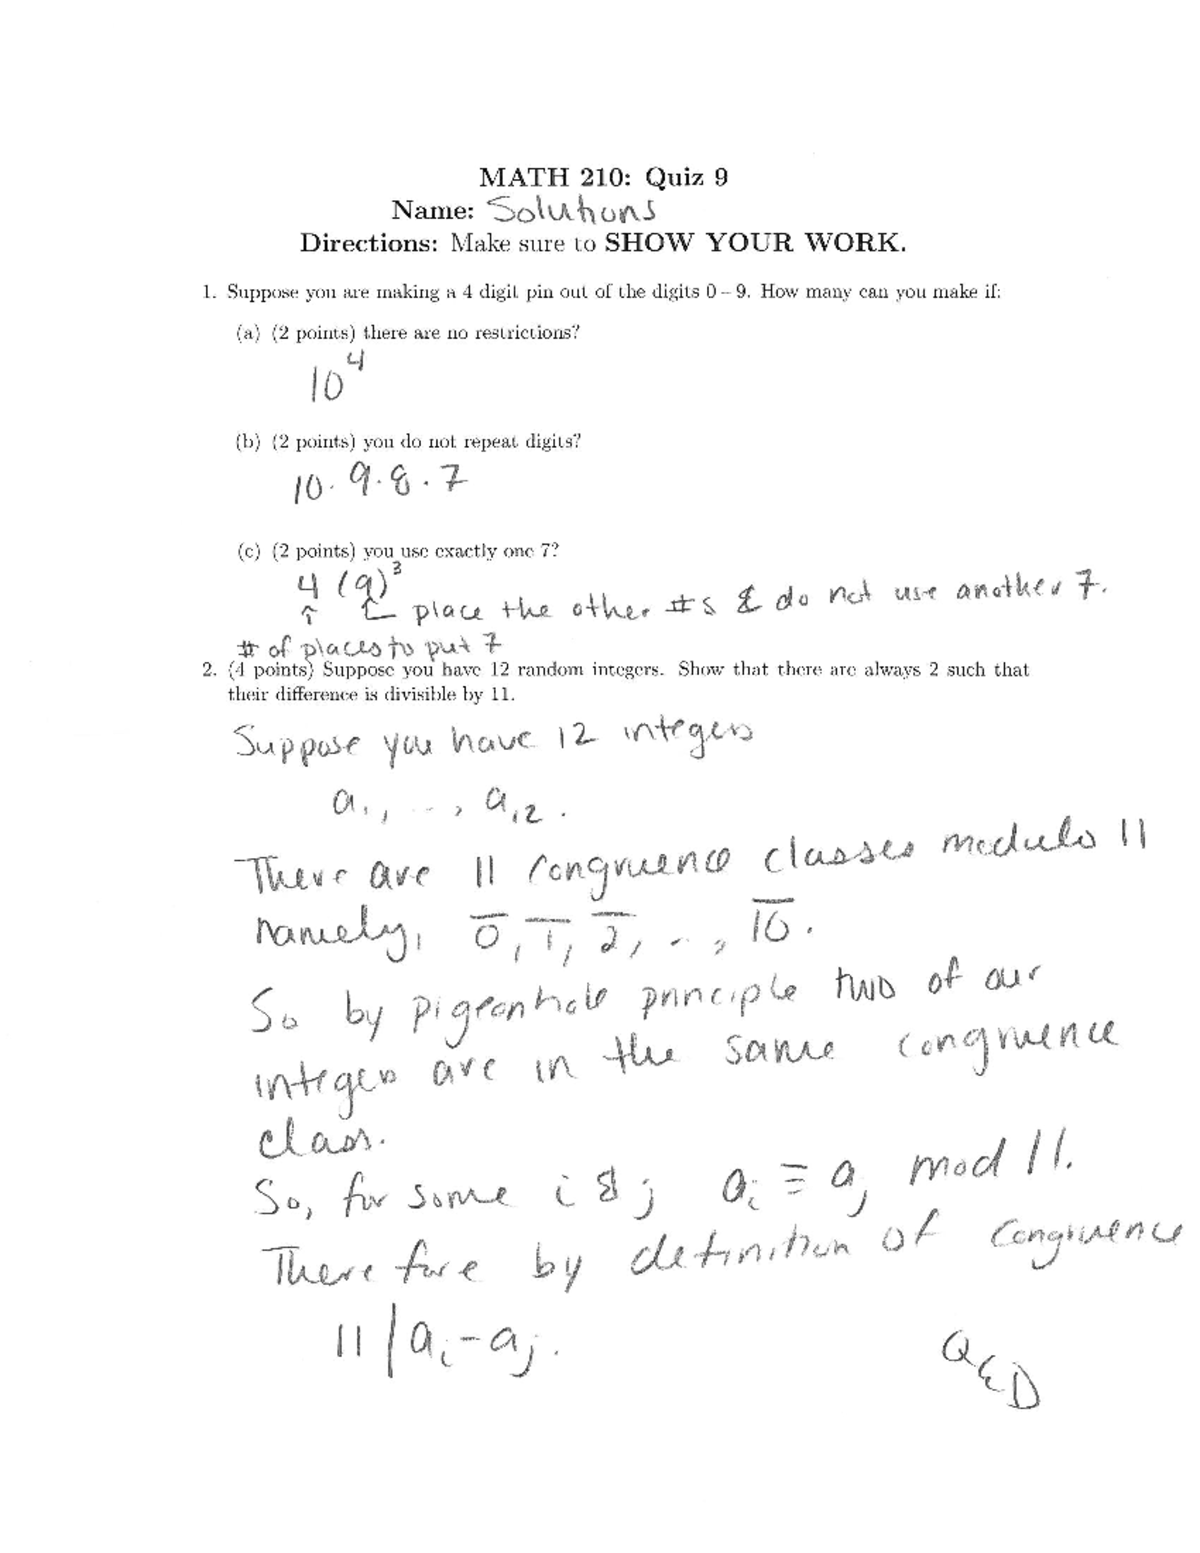 MATH 210: Quiz 9
Name: Solutions
Directions: Make sure to SHOW YOUR WORK.
1. Suppose you are making a 4 digit pin out of the digits 0 – 9. How many can you make if:
(a) (2 points) there are no restrictions?
10⁴
(b) (2 points) you do not repeat digits?
10·9·8·7
(c) (2 points) you use exactly one 7?
4(9)³
↑ ↑ place the other #s & do not use another 7.
# of places to put 7
2. (4 points) Suppose you have 12 random integers. Show that there are always 2 such that
their difference is divisible by 11.
Suppose you have 12 integers
a₁, ..., a₁₂.
There are 11 congruence classes modulo 11
namely, 0̅, 1̅, 2̅, ..., 1̅0̅.
So by pigeonhole principle two of our
integers are in the same congruence
class.
So, for some i & j aᵢ ≡ aⱼ mod 11.
Therefore by definition of congruence
11 | aᵢ - aⱼ.
QED